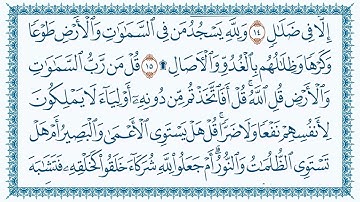 إِلَّا فِى ضَلَـٰلٍ ١٤ وَلِلَّهِ يَسْجُدُ مَن فِى ٱلسَّمَـٰوَٰتِ وَٱلْأَرْضِ طَوْعًا
وَكَرْهًا وَظِلَـٰلُهُم بِٱلْغُدُوِّ وَٱلْـَٔاصَالِ ۩ ١٥ قُلْ مَن رَّبُّ ٱلسَّمَـٰوَٰتِ
وَٱلْأَرْضِ قُلِ ٱللَّهُ قُلْ أَفَٱتَّخَذْتُم مِّن دُونِهِۦٓ أَوْلِيَآءَ لَا يَمْلِكُونَ
لِأَنفُسِهِمْ نَفْعًا وَلَا ضَرًّا قُلْ هَلْ يَسْتَوِى ٱلْأَعْمَىٰ وَٱلْبَصِيرُ أَمْ هَلْ
تَسْتَوِى ٱلظُّلُمَـٰتُ وَٱلنُّورُ أَمْ جَعَلُوا۟ لِلَّهِ شُرَكَآءَ خَلَقُوا۟ كَخَلْقِهِۦ فَتَشَـٰبَهَ